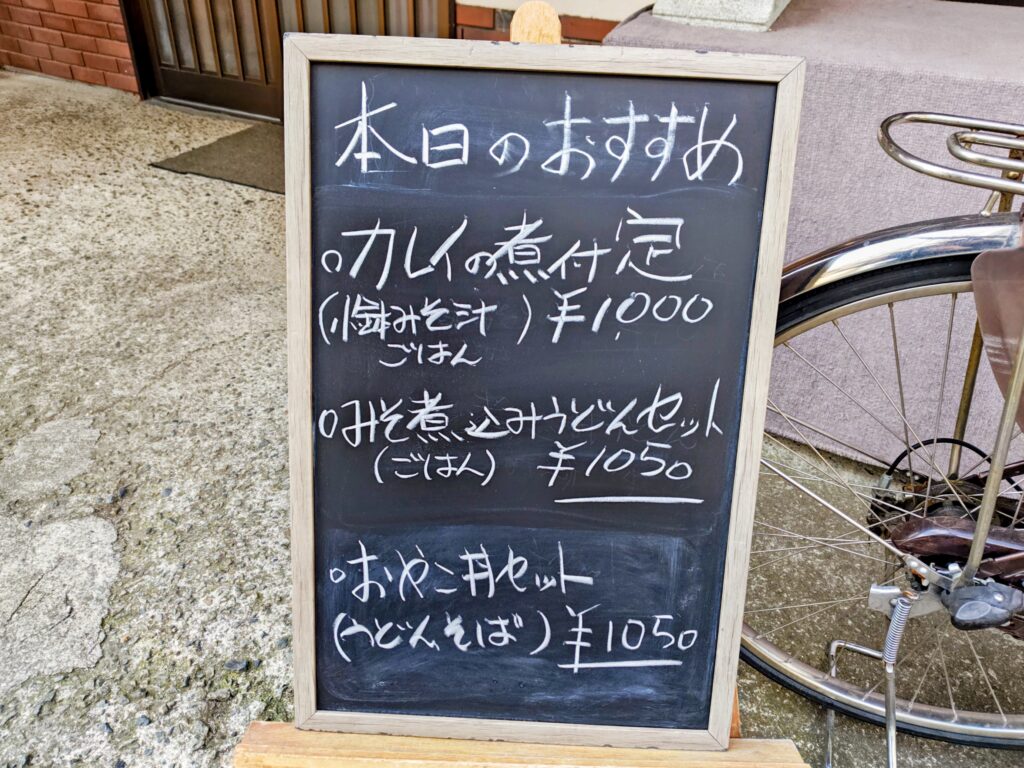 本日のおすすめ
○カレイの煮付定
(小鉢みそ汁) ¥1,000
ごはん
○みそ煮込みうどんセット
(ごはん) ¥1050
○おやこ丼セット
(うどん、そば) ¥1050